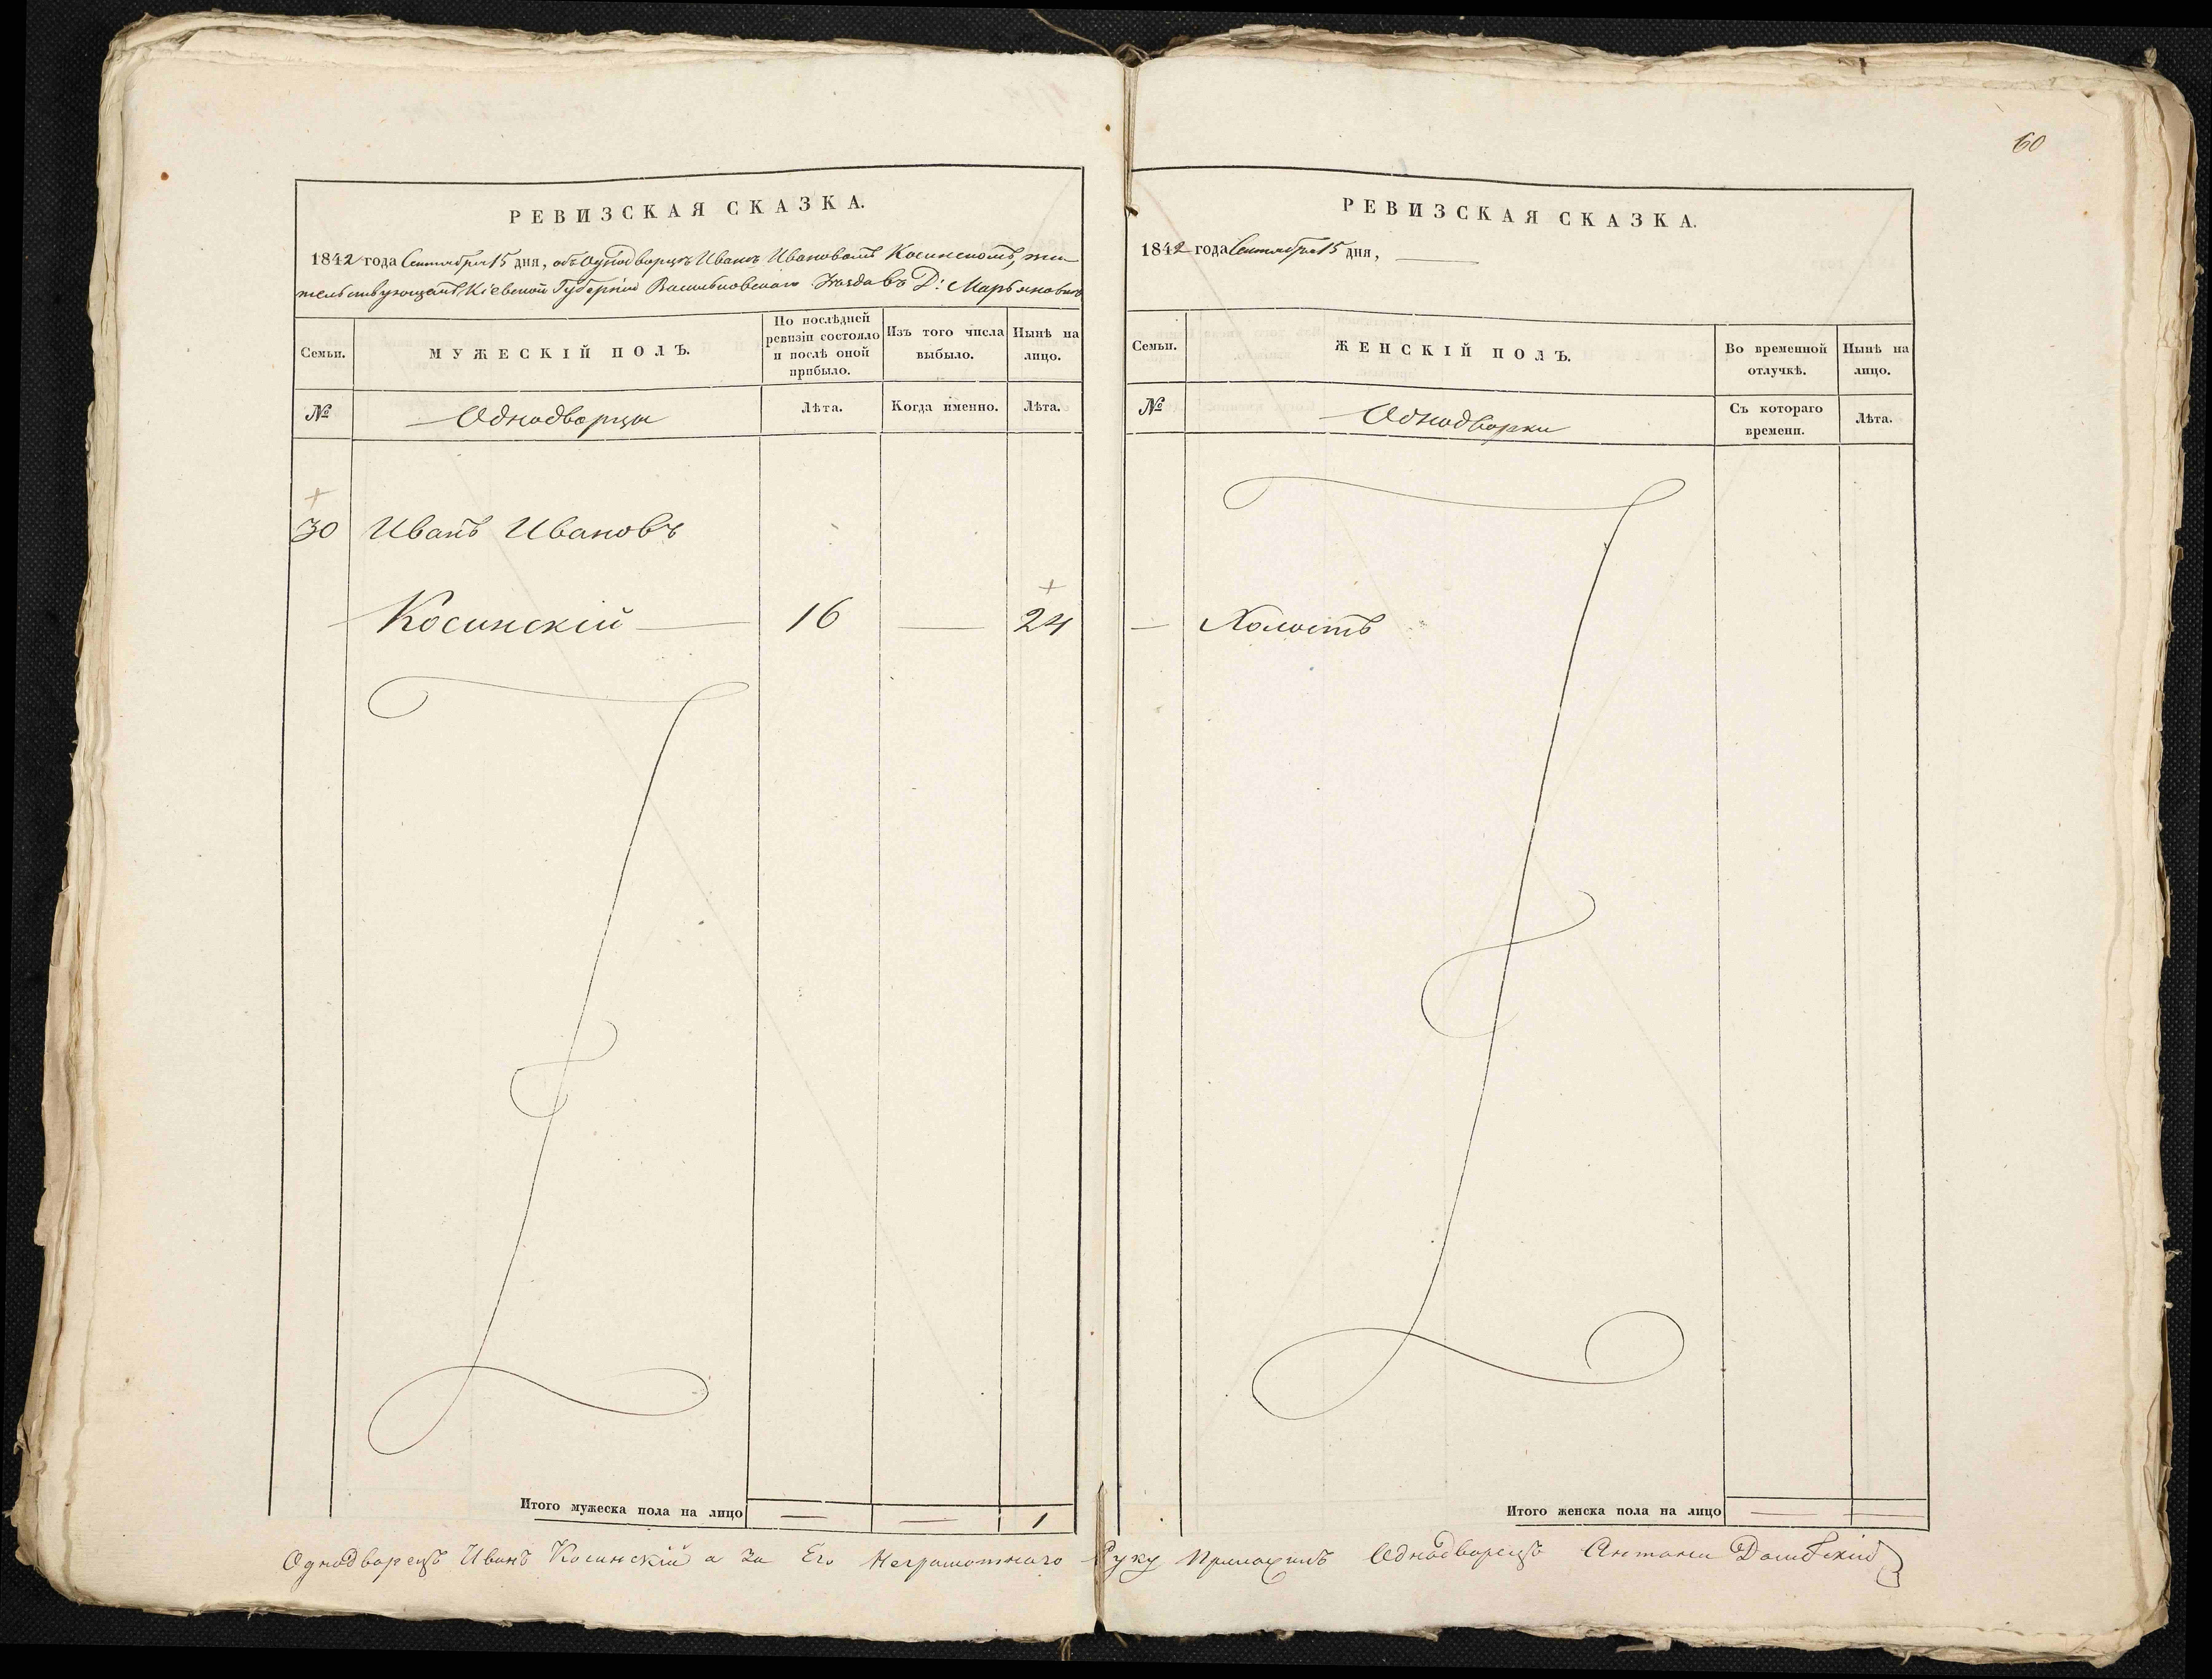 60
РЕВИЗСКАЯ СКАЗКА.
1842 года Сентября 15 дня, объ Однодворцѣ Иванѣ Ивановомъ Косинскомъ, жи-
тельствующемъ Кіевской Губерніи Васильковскаго Уѣзда въ Д: Марьяновкѣ
Семьи.
МУЖЕСКІЙ ПОЛЪ.
По послѣдней
ревизіи состояло
и послѣ оной
прибыло.
Изъ того числа
выбыло.
Нынѣ на
лицо.
№
Однодворцы
Лѣта.
Когда именно.
Лѣта.
30 Иванъ Ивановъ
Косинскій — 16 — 24
Итого мужеска пола на лицо — — 1
РЕВИЗСКАЯ СКАЗКА.
1842 года Сентября 15 дня, —
Семьи.
ЖЕНСКІЙ ПОЛЪ.
Во временной
отлучкѣ.
Нынѣ на
лицо.
№
Однодворки
Съ котораго
времени.
Лѣта.
— Холостъ
Итого женска пола на лицо — —
Однодворецъ Иванъ Косинскій а За Его Неграмотнаго Руку Приложилъ Однодворецъ Антони